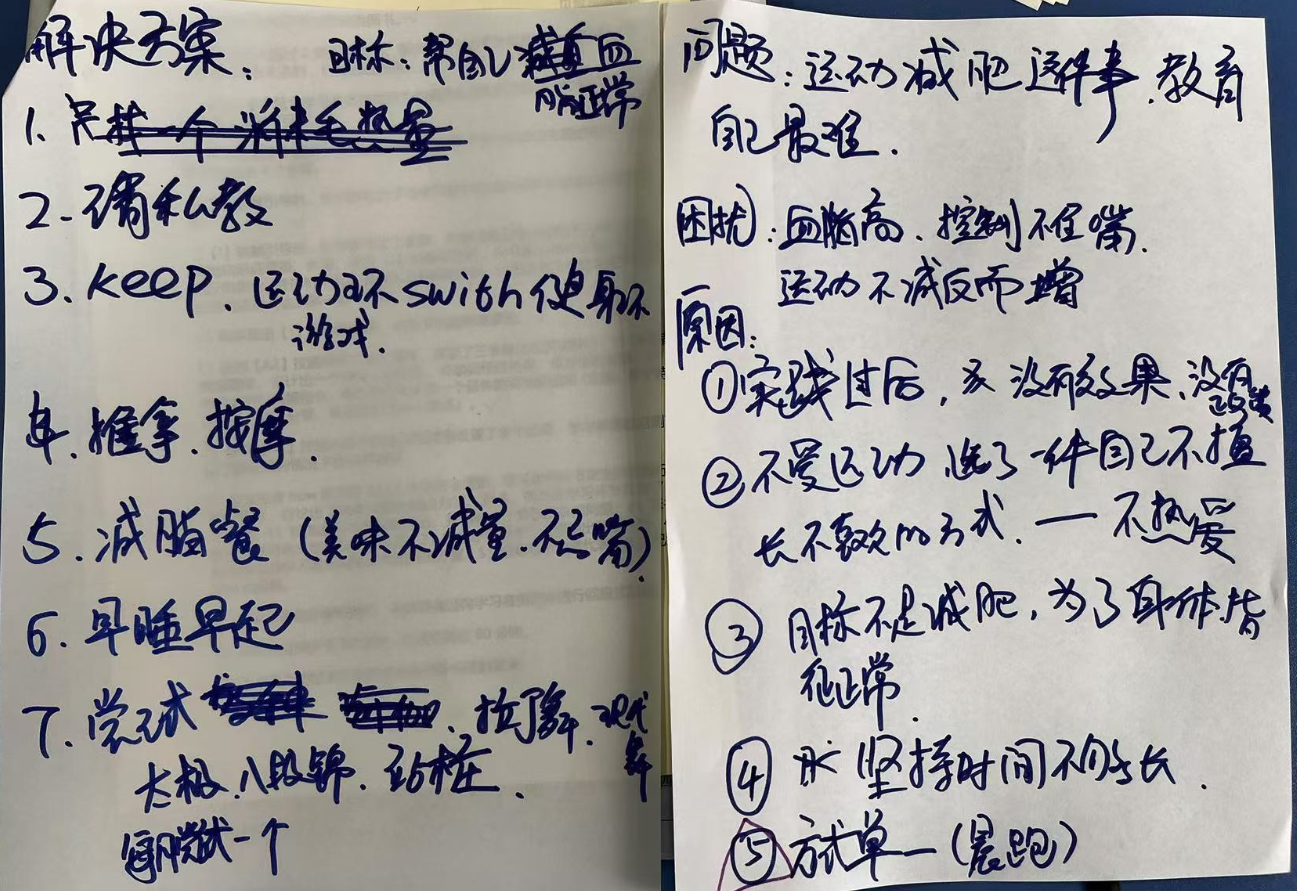 解决方案：
目标：帮自己减重血
脂正常
1.
2. 请私教
3. keep、运动环 swith 健身环
游戏.
4. 推拿、按摩.
5. 减脂餐（美味不减量、不忌嘴）
6. 早睡早起
7. 尝试 、拉丁舞、现代
舞
太极、八段锦、站桩、
每月尝试一个
问题：运动减肥这件事、教育
自己最难.
困扰：血脂高、控制不住嘴、
运动不减反而增
原因：
①实践过后，没有效果、没有
正反馈
②不爱运动 选了一件自己不擅
长不喜欢的方式. — 不热爱
③目标不是减肥，为了身体指
征正常.
④坚持时间不够长.
⑤方式单一（晨跑）